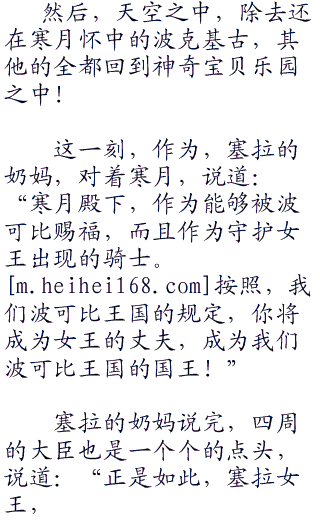 然后，天空之中，除去还
在寒月怀中的波克基古，其
他的全都回到神奇宝贝乐园
之中！
这一刻，作为，塞拉的
奶妈，对着寒月，说道：
“寒月殿下，作为能够被波
可比赐福，而且作为守护女
王出现的骑士。
[m.heihei168.com]按照，我
们波可比王国的规定，你将
成为女王的丈夫，成为我们
波可比王国的国王！”
塞拉的奶妈说完，四周
的大臣也是一个个的点头，
说道：“正是如此，塞拉女
王，